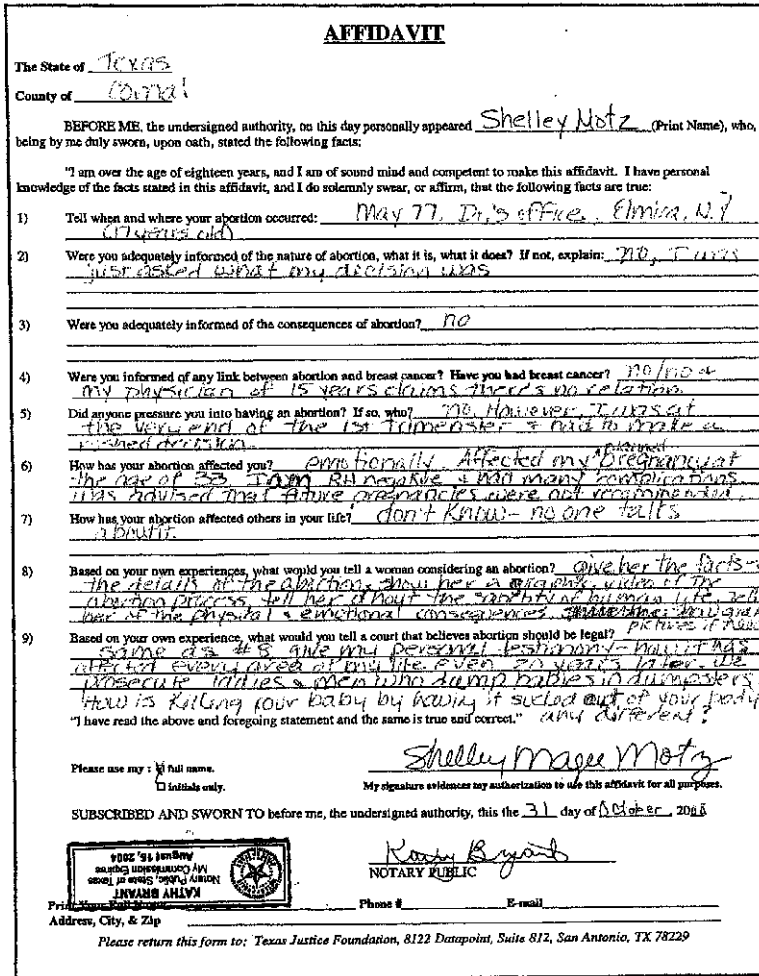 AFFIDAVIT
The State of Texas
County of Comal
BEFORE ME, the undersigned authority, on this day personally appeared Shelley Motz (Print Name), who,
being by me duly sworn, upon oath, stated the following facts:
"I am over the age of eighteen years, and I am of sound mind and competent to make this affidavit. I have personal
knowledge of the facts stated in this affidavit, and I do solemnly swear, or affirm, that the following facts are true:
1) Tell when and where your abortion occurred: May 77, Dr.'s office, Elmira, N.Y
(17 years old)
2) Were you adequately informed of the nature of abortion, what it is, what it does? If not, explain: no, I was
just asked what my decision was
3) Were you adequately informed of the consequences of abortion? no
4) Were you informed of any link between abortion and breast cancer? Have you had breast cancer? no/no &
my physician of 15 years claims there's no relation.
5) Did anyone pressure you into having an abortion? If so, who? no, However, I was at
the very end of the 1st trimenster & had to make a
rushed decision.
6) How has your abortion affected you? emotionally. Affected my planned pregnancy at
the age of 33. I am RH negative & had many complications
was advised that future pregnancies were not recommended.
7) How has your abortion affected others in your life? don't know - no one talks
about it.
8) Based on your own experiences, what would you tell a woman considering an abortion? give her the facts -
the details of the abortion, show her a graphic video of the
abortion process, tell her about the sanctity of human life, tell
her of the physical & emotional consequences
9) Based on your own experience, what would you tell a court that believes abortion should be legal? picture if
same as #8 give my personal testimony - how it has
affected every area of my life even 20 years later. We
prosecute ladies & men who dump babies in dumpsters
How is killing your baby by having it sucked out of your body
"I have read the above and foregoing statement and the same is true and correct." any different?
Please use my : full name.
initials only.
Shelley Magee Motz
My signature evidences my authorization to use this affidavit for all purposes.
SUBSCRIBED AND SWORN TO before me, the undersigned authority, this the 31 day of October, 200
Kathy Bryant
NOTARY PUBLIC
KATHY BRYANT
Notary Public, State of Texas
My Commission Expires
August 15, 2004
Phone # E-mail
Address, City, & Zip
Please return this form to: Texas Justice Foundation, 8122 Datapoint, Suite 812, San Antonio, TX 78229